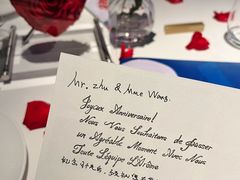 Mr. Zhu & Mme Wong.
Joyeux Anniversaire!
Nous Vous Souhaitons de Passer
un Agréable Moment Avec Nous
Toute L'équipe L'Arôme